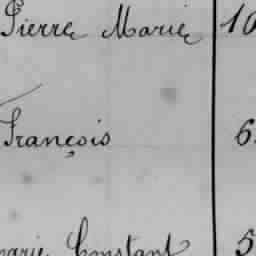 Pierre Marie 10
François 6
marie Constant 5